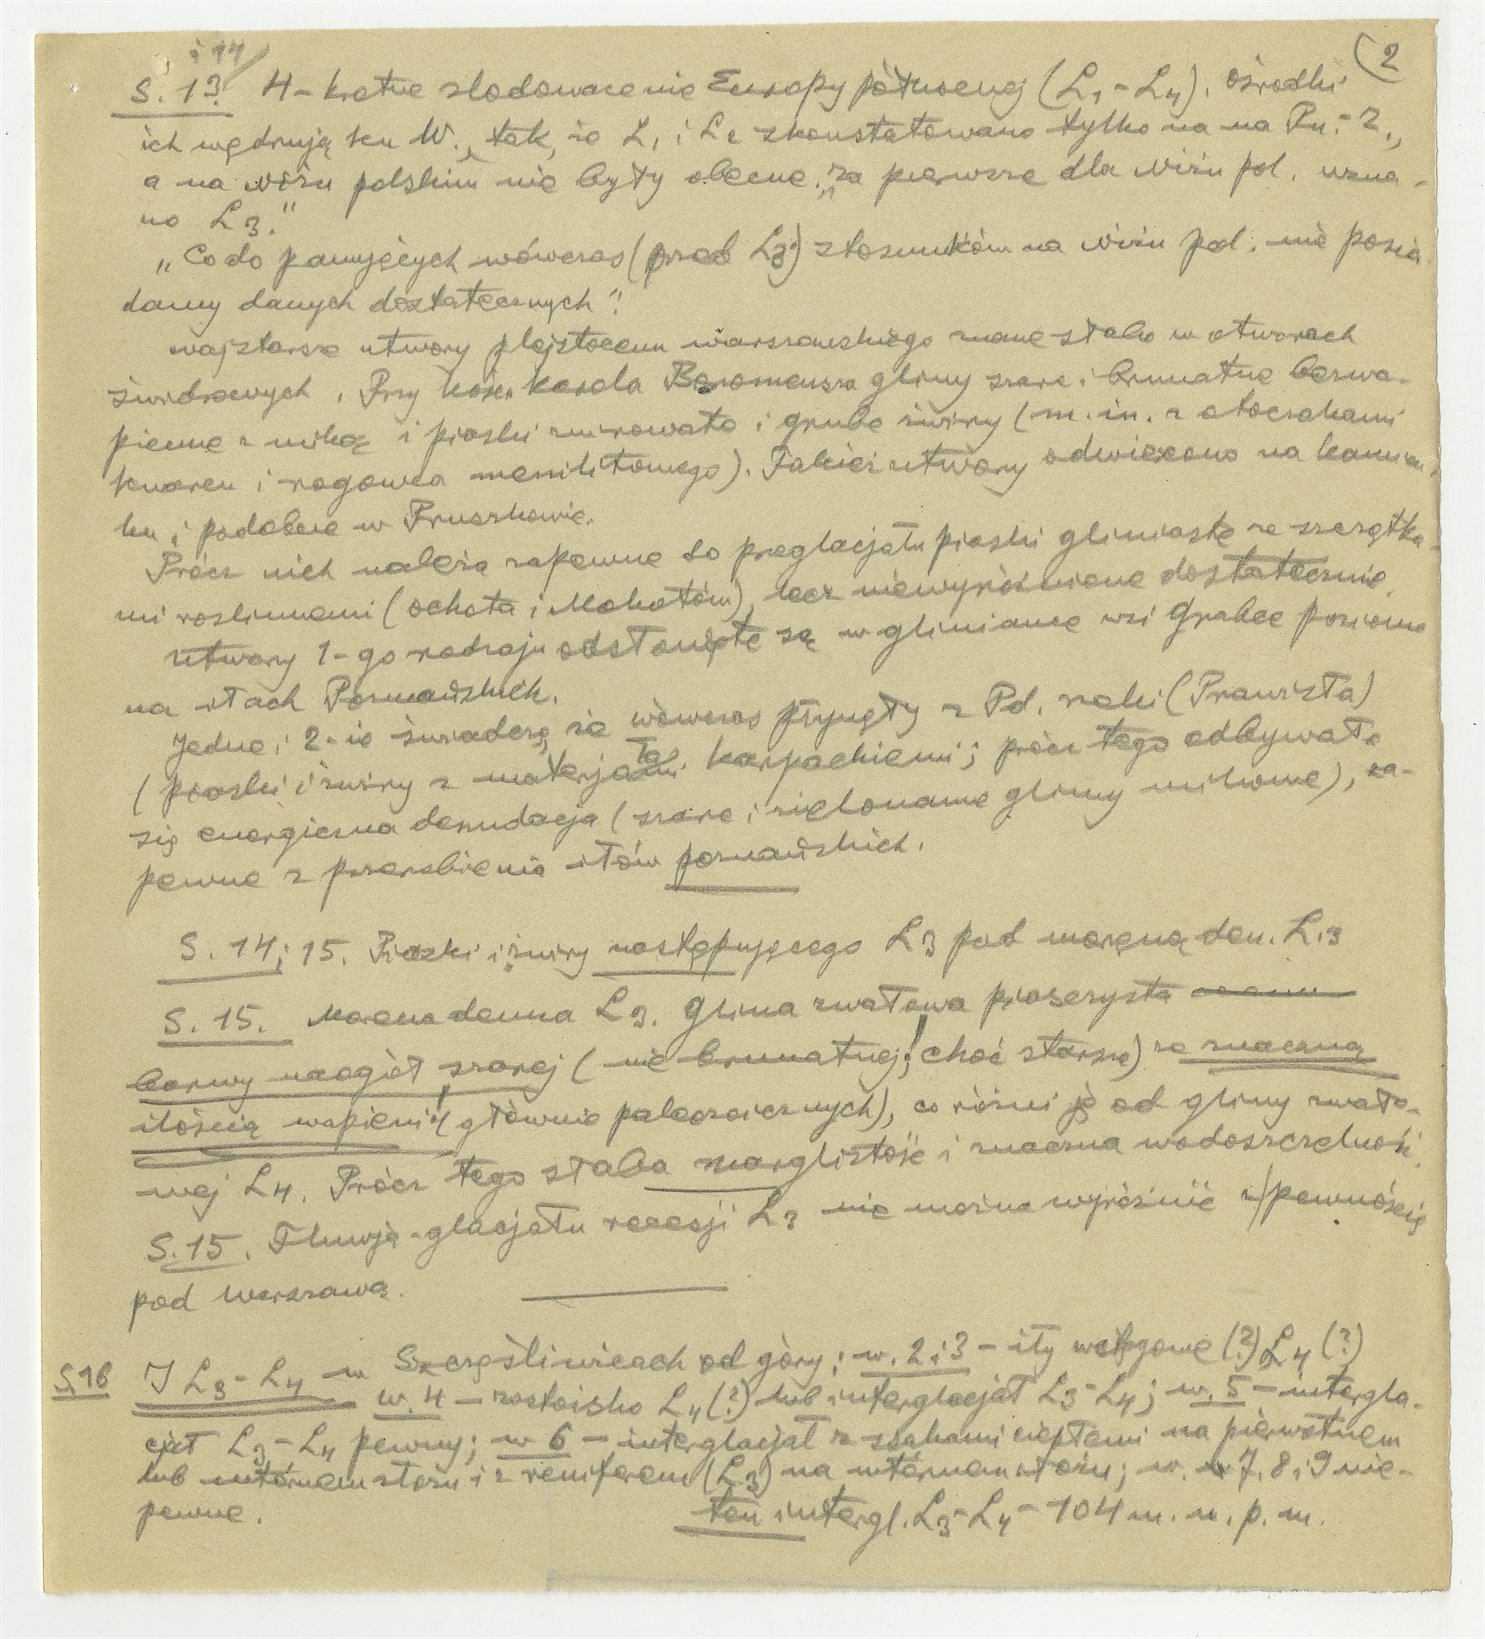 2
i 14
S. 13. 4-krotne zlodowacenie Europy północnej (L1-L4). Ośrodki
ich wędrują ku W., tak, że L1 i L2 skonstatowano tylko na Pn.-Z.,
a na Niżu polskim nie były obecne. „Za pierwsze dla Niżu pol. uzna-
no L3."
„Co do panujących wówczas (przed L3) stosunków na Niżu pol. nie posia-
damy danych dostatecznych".
Najstarsze utwory plejstocenu warszawskiego znane słabo w otworach
świdrowych. Przy kośc. Karola Boromeusza gliny szare i brunatne bezwa-
pienne z miką i piaski żwirowate i grube żwiry (m. in. z otoczakami
kwarcu i rogowca menilitowego). Takież utwory odwiercono na Kamion-
ku i podobne w Pruszkowie.
Prócz nich należą zapewne do preglacjału piaski gliniaste ze szczątka-
mi roślinnemi (Ochota i Mokotów), lecz niewyróżnione dostatecznie.
Utwory 1-go rodzaju odsłonięte są w gliniance wsi Grabce poziomo
na iłach Poznańskich.
Jedne i 2-ie świadczą, że wówczas płynęły z Pd. rzeki (Prawisła)
(piaski i żwiry z materjałami karpackiemi; prócz tego odbywała
się energiczna denudacja (szare i zielonawe gliny mikowe), za-
pewne z przerobienia iłów poznańskich.
S. 14 i 15. Piaski i żwiry następującego L3 pod moreną den. L3
S. 15. Morena denna L3. Glina zwałowa piaszczysta
barwy naogół szarej (nie brunatnej; choć starsze) ze znaczną
ilością wapieni! (głównie paleozoicznych), co różni ją od gliny zwało-
wej L4. Prócz tego słaba marglistość i znaczna wodoszczelność.
S. 15. Fluwja-glacjału recesji L3 nie można wyróżnić z pewnością
pod Warszawą.
S. 16 I L3-L4 w Szczęśliwicach od góry: w. 2 i 3 - iły wstęgowe (?) L4 (?)
w. 4 - zastoisko L4 (?) lub interglacjał L3-L4; w. 5 - intergla-
cjał L3-L4 pewny; w 6 - interglacjał z ssakami ciepłemi na pierwotnem
lub wtórnem złożu i z reniferem (L3) na wtórnem złożu; w. w 7, 8 i 9 nie-
pewne. ten intergl. L3-L4 - 104 m. n. p. m.